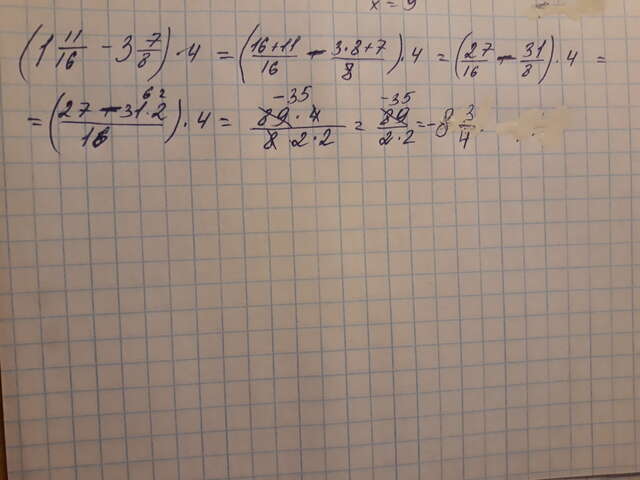 x = 9
(1 11/16 - 3 7/8) · 4 = (16+11/16 - 3·8+7/8) · 4 = (27/16 - 31/8) · 4 =
= (27 - 31·2/16) · 4 = -35 · 4/2·2 = -35/2·2 = -8 3/4.